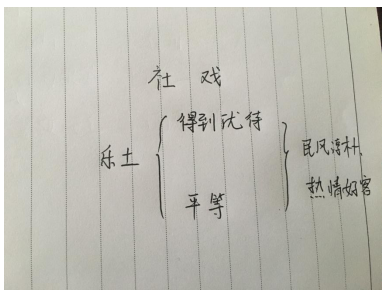 社戏
得到优待
乐土
民风淳朴、
热情好客
平等